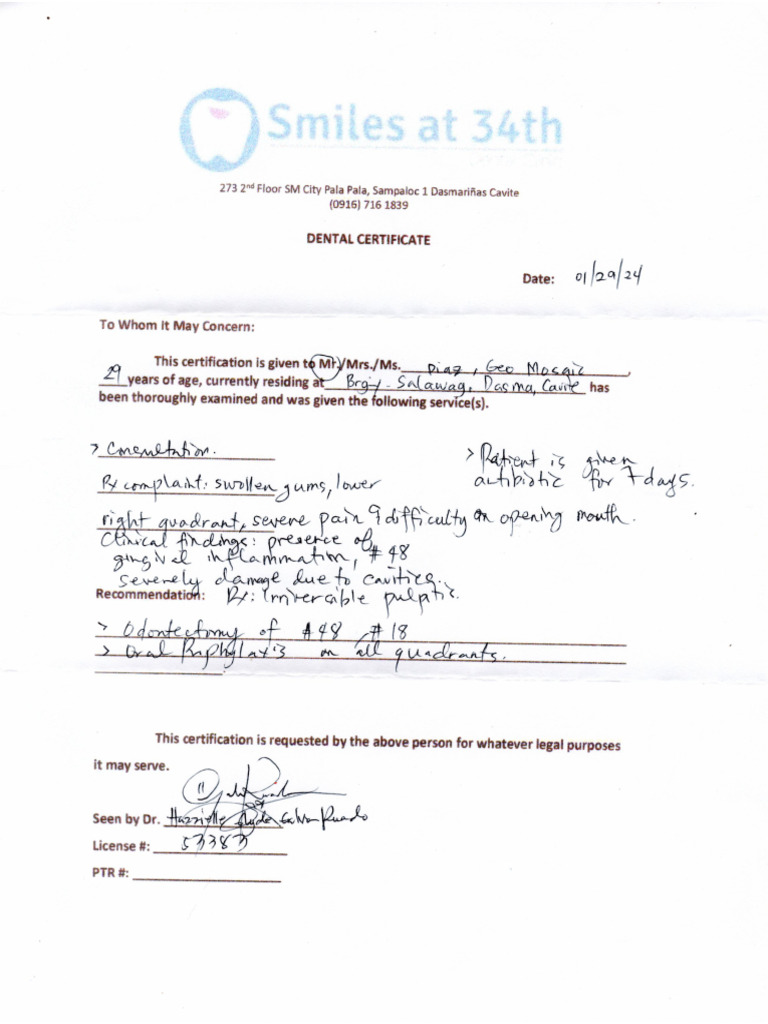 Smiles at 34th
273 2nd Floor SM City Pala Pala, Sampaloc 1 Dasmariñas Cavite
(0916) 716 1839
DENTAL CERTIFICATE
Date: 01/29/24
To Whom it May Concern:
This certification is given to Mr/Mrs./Ms. Diaz, Geo Mosaic,
29 years of age, currently residing at Brgy. Salawag, Dasma, Cavite has
been thoroughly examined and was given the following service(s).
> Consultation.
Px complaint: swollen gums, lower
right quadrant, severe pain & difficulty on opening mouth.
Clinical findings: presence of
gingival inflammation, #48
severely damage due to cavities.
> Patient is given
antibiotic for 7 days.
Recommendation: Dx: Irriversible pulptic.
> Odontectomy of #48 #18
> Oral Prophylaxis on all quadrants.
This certification is requested by the above person for whatever legal purposes
it may serve.
Seen by Dr. Ruado
License #: 53383
PTR #: